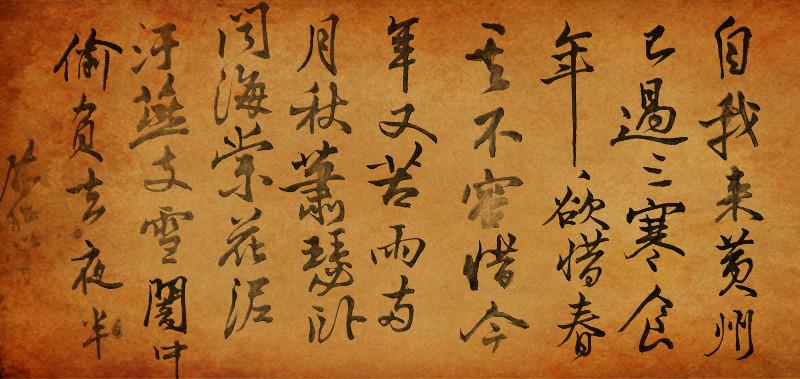 自我来黄州
已過三寒食
年、欲惜春
春去不容惜今
年又苦雨两
月秋蕭瑟卧
闻海棠花泥
汙燕支雪闇中
偷負去夜半